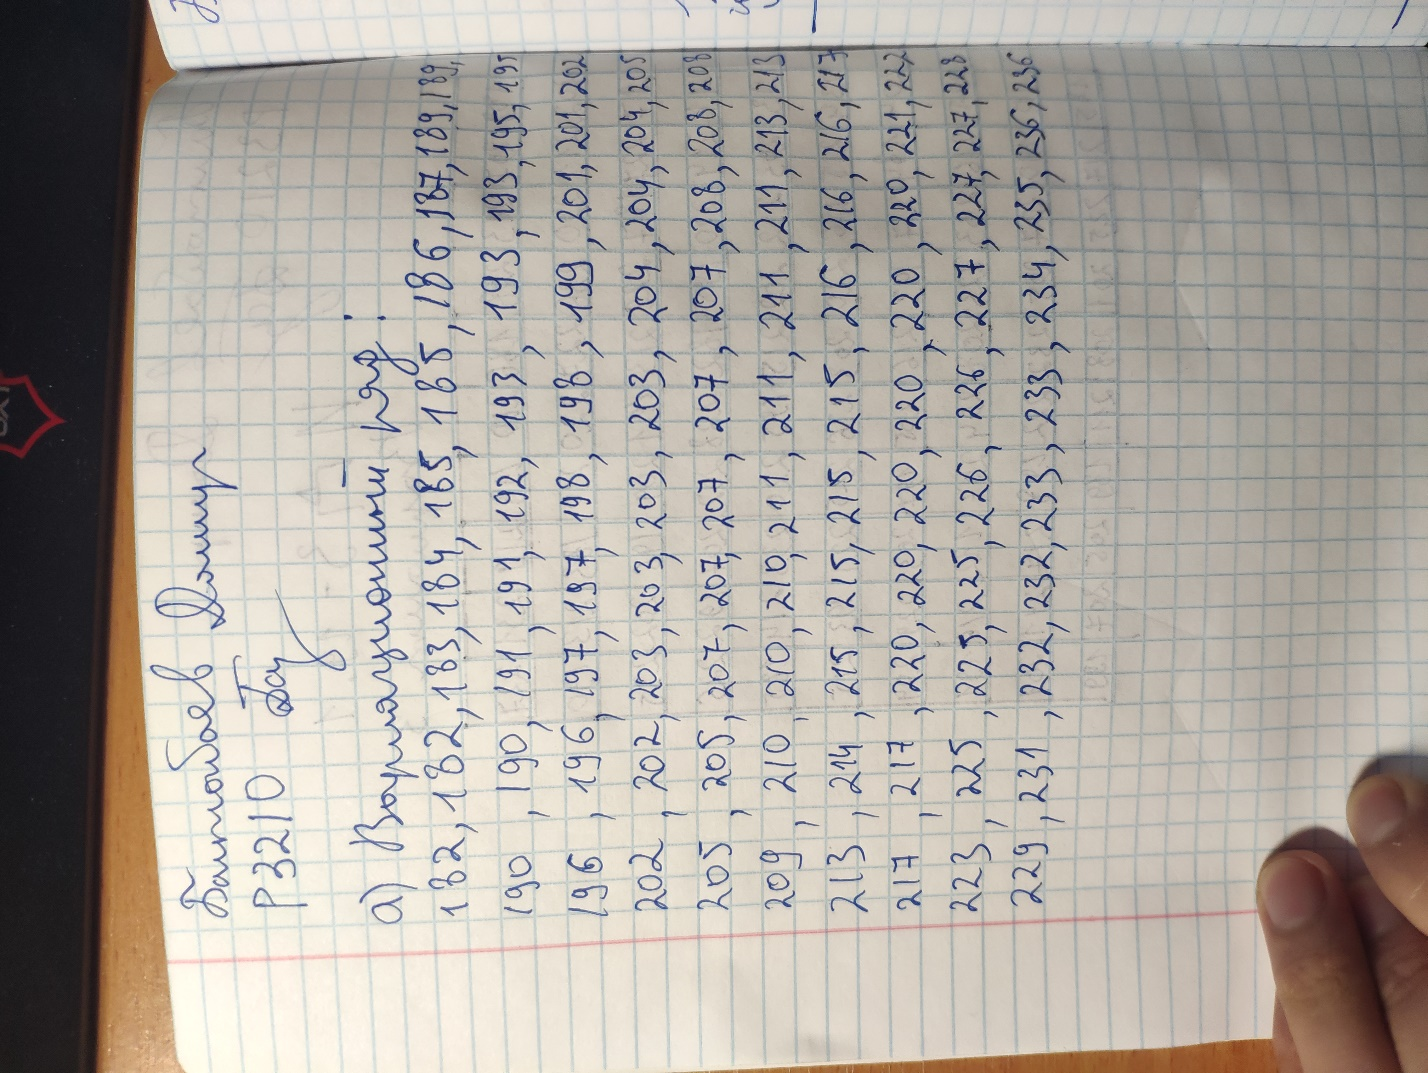 Бантобаев Дамир
P3210
а) Вариационный ряд:
182, 182, 183, 184, 185, 185, 185, 186, 187, 189, 189,
190, 190, 191, 191, 192, 193, 193, 193, 193, 195, 195
196, 196, 197, 197, 198, 198, 199, 201, 201, 202
202, 202, 203, 203, 203, 203, 204, 204, 204, 205
205, 205, 207, 207, 207, 207, 207, 208, 208, 208
209, 210, 210, 210, 211, 211, 211, 211, 213, 213
213, 214, 215, 215, 215, 215, 216, 216, 216, 217
217, 217, 220, 220, 220, 220, 220, 220, 221, 222
223, 225, 225, 225, 226, 226, 227, 227, 227, 228
229, 231, 232, 232, 233, 233, 234, 235, 236, 236